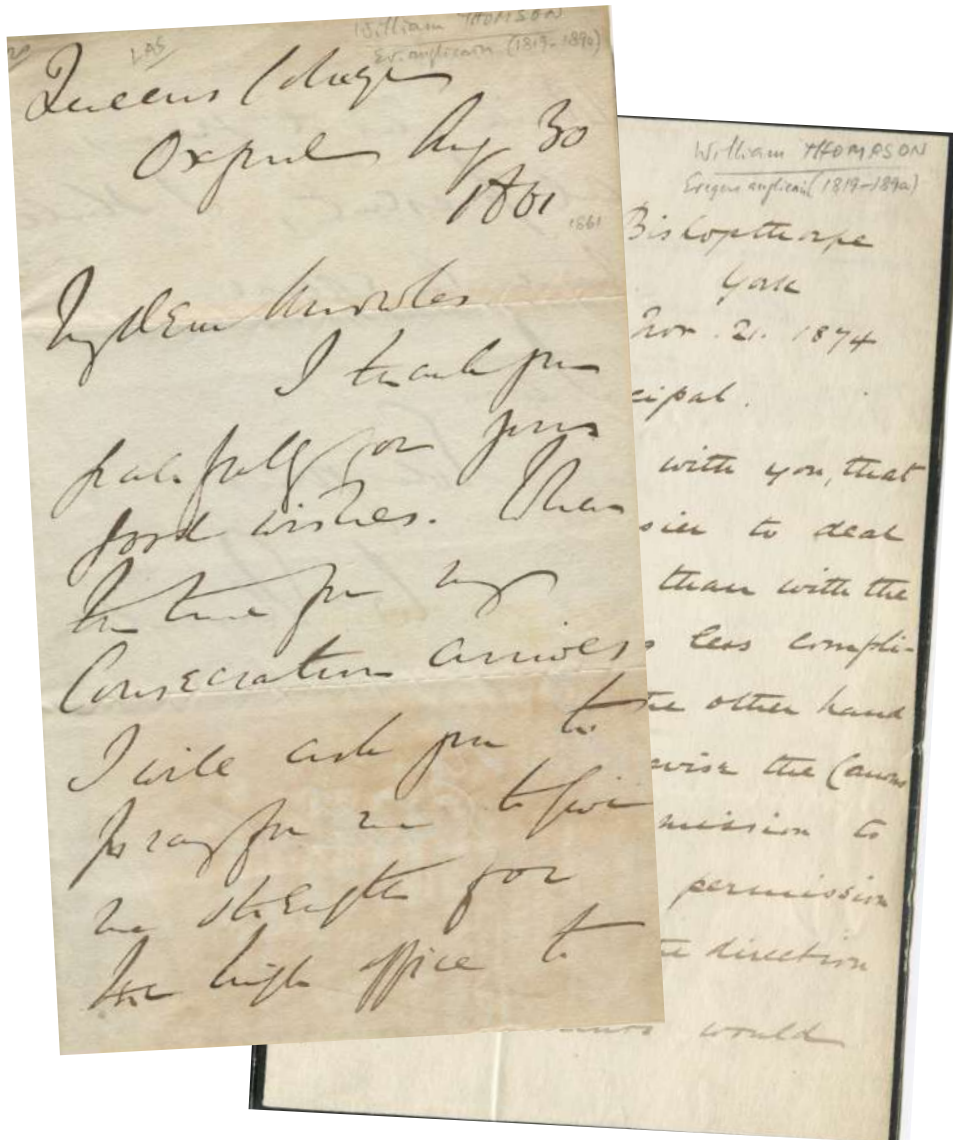 LAS
William THOMSON
Ev. anglican (1819-1890)
Queens College
Oxford Aug 30
1861
1861
My dear Knowles
I thank you
gratefully for your
good wishes. When
the time for my
Consecration arrives
I will ask you to
pray for me to give
me strength for
the high office to
William THOMPSON
(1819-1890)
Bishopthorpe
York
Nov. 21. 1874
cipal.
with you, that
sier to deal
than with the
s less compli-
the other hand
wise the Canons
mission to
permission
direction
would